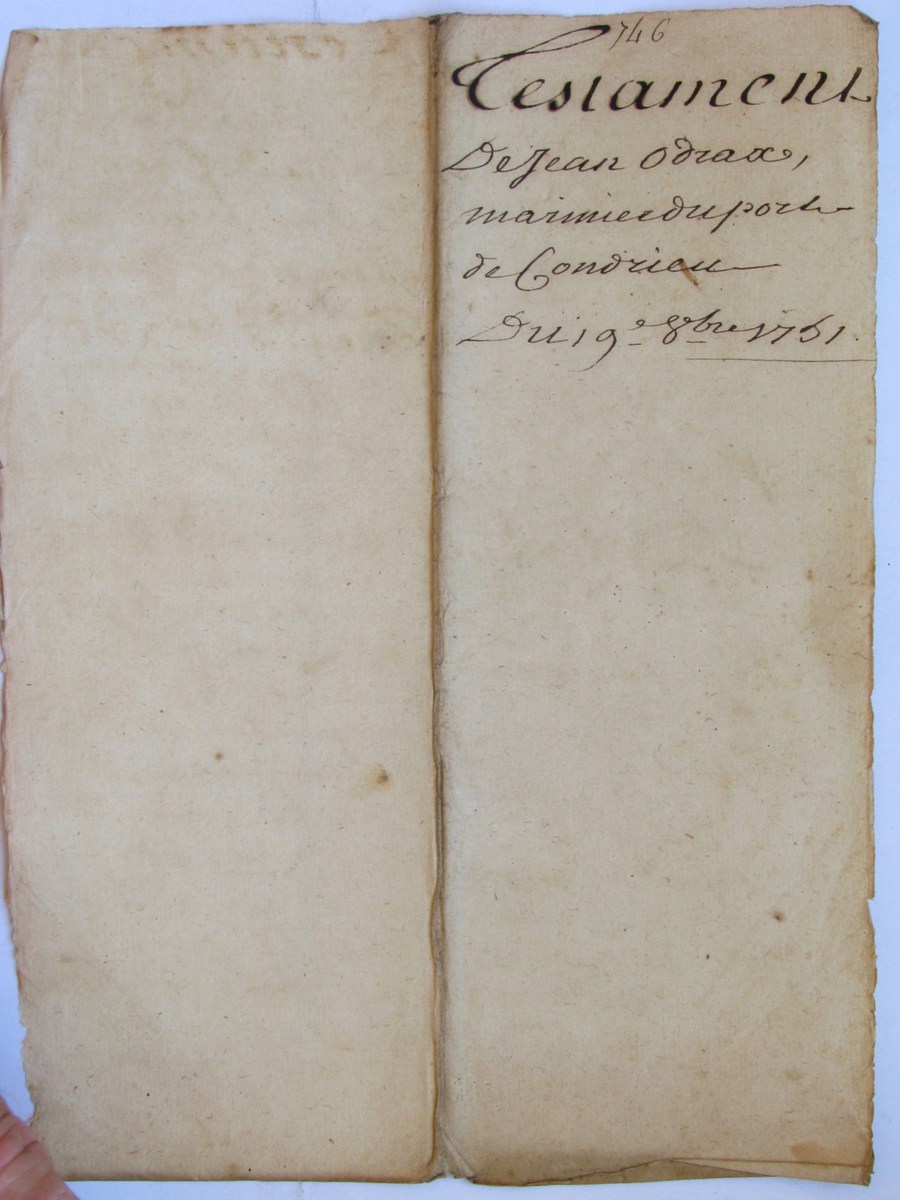 746
Testament
De Jean Odrax,
marinier du port
de Condrieu
Du 19e 8bre 1751